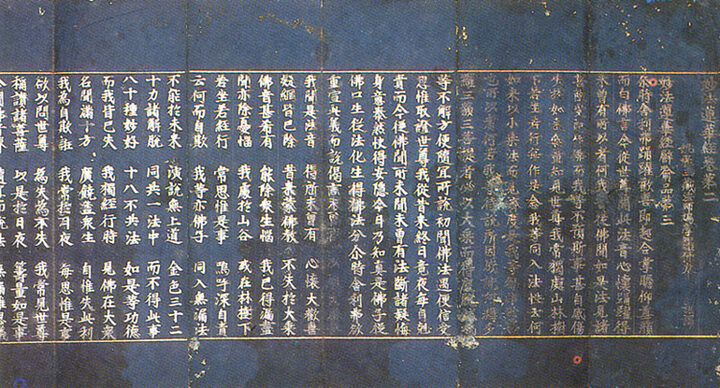 妙法蓮華經卷第二
妙法蓮華經譬喻品第三
尒時舍利弗踊躍歡喜即起合掌瞻仰尊顏
而白佛言今從世尊聞此法音心懷踊躍得
未曾有所以者何我昔從佛聞如是法見諸
菩薩受記作佛而我等不預斯事甚自感傷
失於如來無量知見世尊我常獨處山林樹
下若坐若行每作是念我等同入法性云何
如來以小乘法而見濟度是我等咎非世尊
也所以者何若我等待說所因成就阿耨多
羅三藐三菩提者必以大乘而得度脫然我
等不解方便隨宜所說初聞佛法遇便信受
思惟取證世尊我從昔來終日竟夜每自剋
責而今從佛聞所未聞未曾有法斷諸疑悔
身意泰然快得安隱今日乃知真是佛子從
佛口生從法化生得佛法分尒時舍利弗欲
重宣此義而說偈言
我聞是法音 得所未曾有 心懷大歡喜
疑網皆已除 昔來蒙佛教 不失於大乘
佛音甚希有 能除衆生惱 我已得漏盡
聞亦除憂惱 我處於山谷 或在林樹下
若坐若經行 常思惟是事 嗚呼深自責
云何而自欺 我等亦佛子 同入無漏法
不能於未來 演說無上道 金色三十二
十力諸解脫 同共一法中 而不得此事
八十種妙好 十八不共法 如是等功德
而我皆已失 我獨經行時 見佛在大衆
名聞滿十方 廣饒益衆生 自惟失此利
我為自欺誑 我常於日夜 每思惟是事
欲以問世尊 為失為不失 我常見世尊
稱讚諸菩薩 以是於日夜 籌量如是事